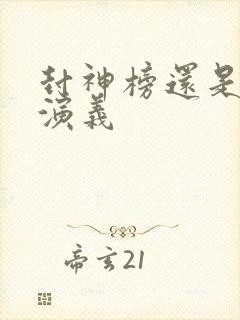 封神榜還是
演義
帝玄21